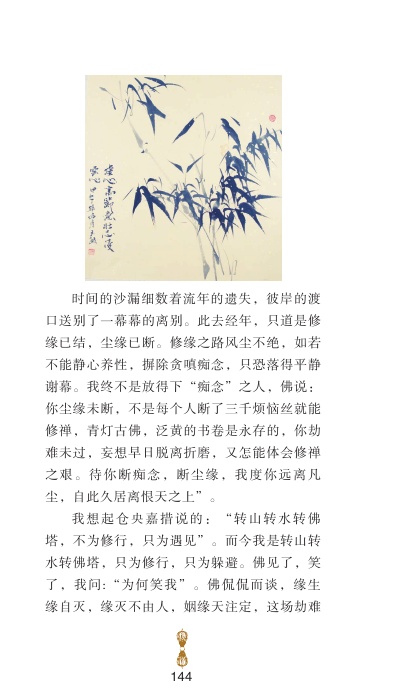 虚心高节
时间的沙漏细数着流年的遗失，彼岸的渡
口送别了一幕幕的离别。此去经年，只道是修
缘已结，尘缘已断。修缘之路风尘不绝，如若
不能静心养性，摒除贪嗔痴念，只恐落得平静
谢幕。我终不是放得下“痴念”之人，佛说：
你尘缘未断，不是每个人断了三千烦恼丝就能
修禅，青灯古佛，泛黄的书卷是永存的，你劫
难未过，妄想早日脱离折磨，又怎能体会修禅
之艰。待你断痴念，断尘缘，我度你远离凡
尘，自此久居离恨天之上”。
我想起仓央嘉措说的：“转山转水转佛
塔，不为修行，只为遇见”。而今我是转山转
水转佛塔，只为修行，只为躲避。佛见了，笑
了，我问：“为何笑我”。佛侃侃而谈，缘生
缘自灭，缘灭不由人，姻缘天注定，这场劫难
144